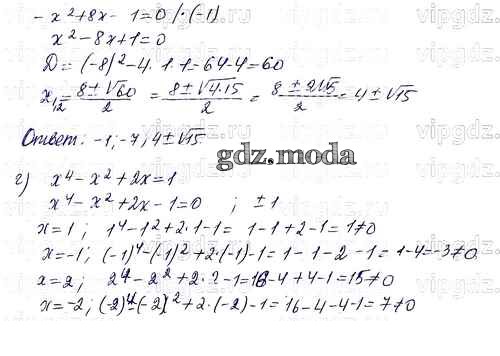 - x² + 8x - 1 = 0 /·(-1)
x² - 8x + 1 = 0
D = (-8)² - 4·1·1 = 64 - 4 = 60
x₁,₂ = (8 ± √60)/2 = (8 ± √4·15)/2 = (8 ± 2√15)/2 = 4 ± √15
Ответ: -1; -7; 4 ± √15
gdz.moda
г) x⁴ - x² + 2x = 1
x⁴ - x² + 2x - 1 = 0 ; ± 1
x = 1 ; 1⁴ - 1² + 2·1 - 1 = 1 - 1 + 2 - 1 = 1 ≠ 0
x = -1; (-1)⁴ - (-1)² + 2·(-1) - 1 = 1 - 1 - 2 - 1 = 1 - 4 = -3 ≠ 0
x = 2 ; 2⁴ - 2² + 2·2 - 1 = 16 - 4 + 4 - 1 = 15 ≠ 0
x = -2; (-2)⁴ - (-2)² + 2·(-2) - 1 = 16 - 4 - 4 - 1 = 7 ≠ 0